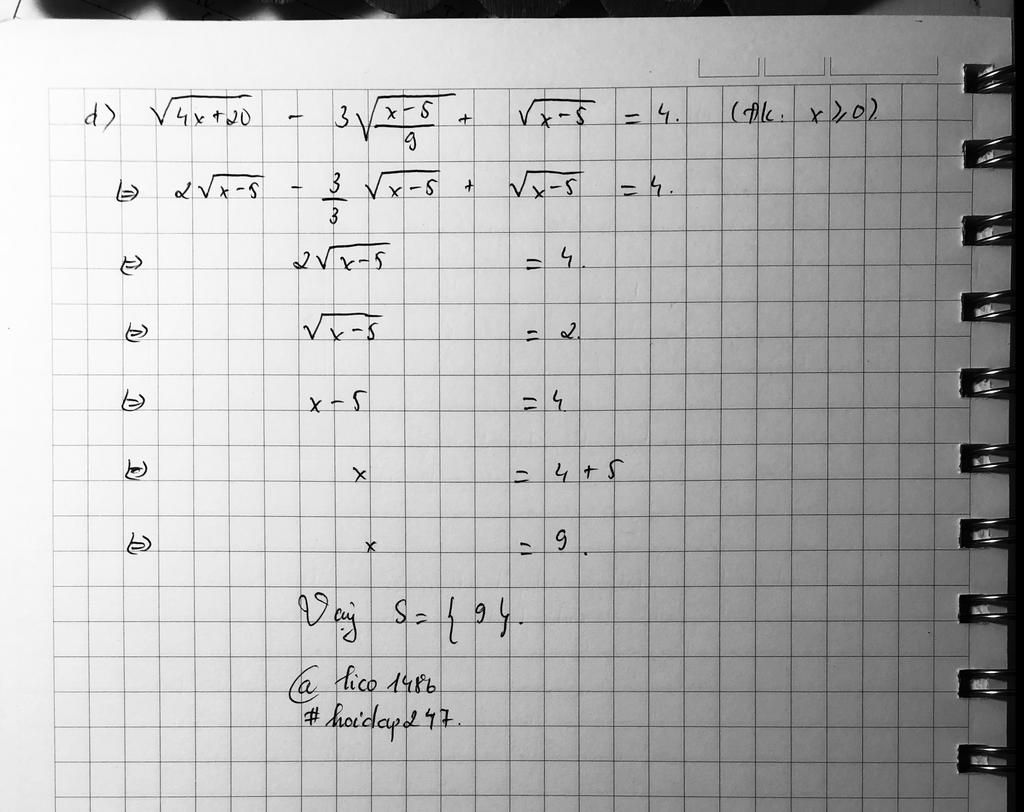 d) √(4x+20) - 3√((x-5)/9) + √(x-5) = 4. (Đk: x ≥ 0).
⇔ 2√(x-5) - 3/3 √(x-5) + √(x-5) = 4.
⇔ 2√(x-5) = 4.
⇔ √(x-5) = 2.
⇔ x - 5 = 4.
⇔ x = 4 + 5
⇔ x = 9.
Vậy S = { 9 }.
@ tico 1486
# hoidap247.